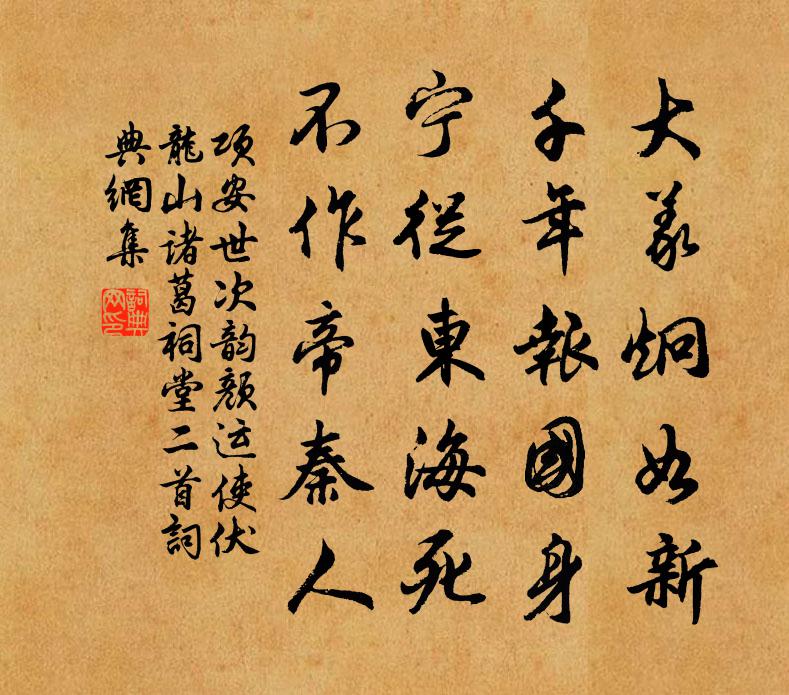 大義炯如新
千年報國身
宁從東海死
不作帝秦人
項安世次韵顏运使伏
龍山诸葛祠堂二首詞
典網集
詞典
网印